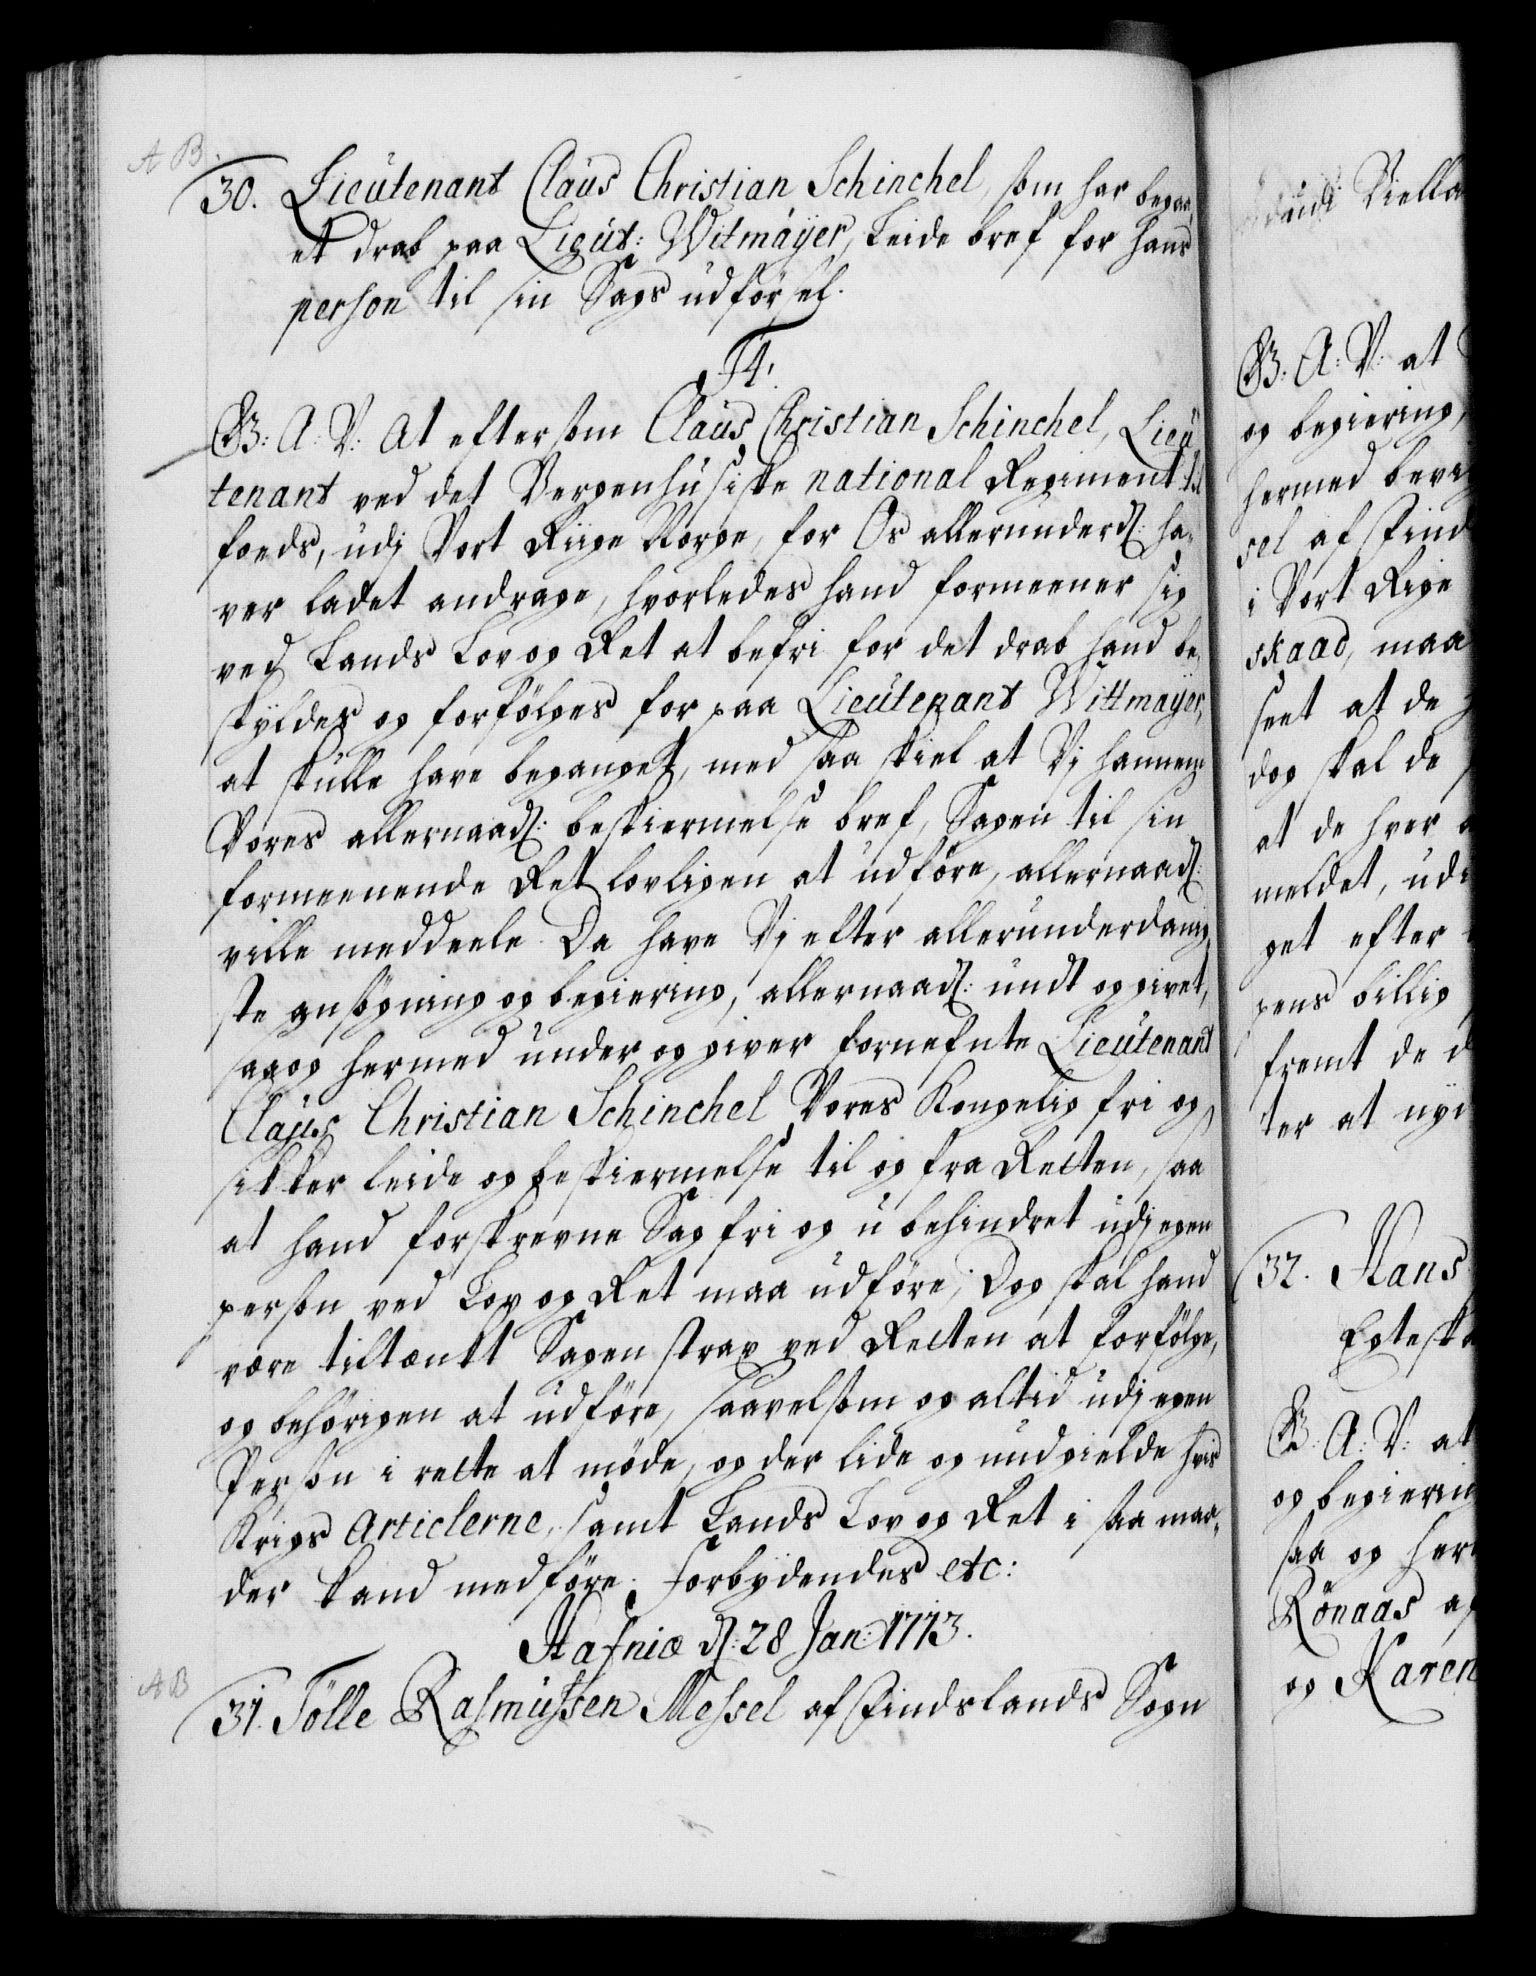 A B
30. Lieutenant Claus Christian Schinchel, som har begaa,
et drab paa Lieut: Witmayer, Leide bref for hans
person til sin Sags udförsel.
F4.
G: A: V: At eftersom Claus Christian Schinchel, Lieu
tenant ved det Bergenhusiske national Regiment til
foeds, udj Vort Riige Norge, for Os allerunderd: ha,
ver ladet andrage, hvorledes hand formeener sig
ved Lands Lov og Ret at befri for det drab hand be,
skyldes og forfölges for paa Lieutenant Wittmayer,
at skulle have beganget, med saa skiel at Vj hannem
Vores allernaad: beskiermelse bref, Sagen til sin
formeenende Ret lovligen at udföre, allernaad:
ville meddeele. Da have Vj efter allerunderdanig,
ste ansögning og begiering, allernaad: undt og givet,
saa og hermed under og giver fornefnte Lieutenant
Claus Christian Schinchel Vores Kongelig fri og
sikker leide og beskiermelse til og fra Retten, saa
at hand forskrevne Sag fri og ubehindret udj egen
person ved Lov og Ret maa udföre; Dog skal hand
være tiltænkt Sagen strax ved Retten at forfölge,
og behörigen at udföre, saavelsom og altid udj egen
Person i rette at möde, og der lide og undgielde hvis
Krigs Articlerne, samt Lands Lov og Ret i saa maa,
der kand medföre. Forbydendes etc:
Hafniæ d: 28 Jan: 1713.
A B
31. Tölle Rasmussen Messel af Findslands Sogn
udi Viella
G: A: V: at
og begiering,
hermed bevi
sel af Find
i Vort Rige
skaad, maa
seet at de
dog skal de
at de hver
meldet, udi
get efter
gens billig
fremt de d
ter at nyi
32. Hans
Egteska
G: A: V: at
og begierin
saa og her
Rönaas af
og Karen